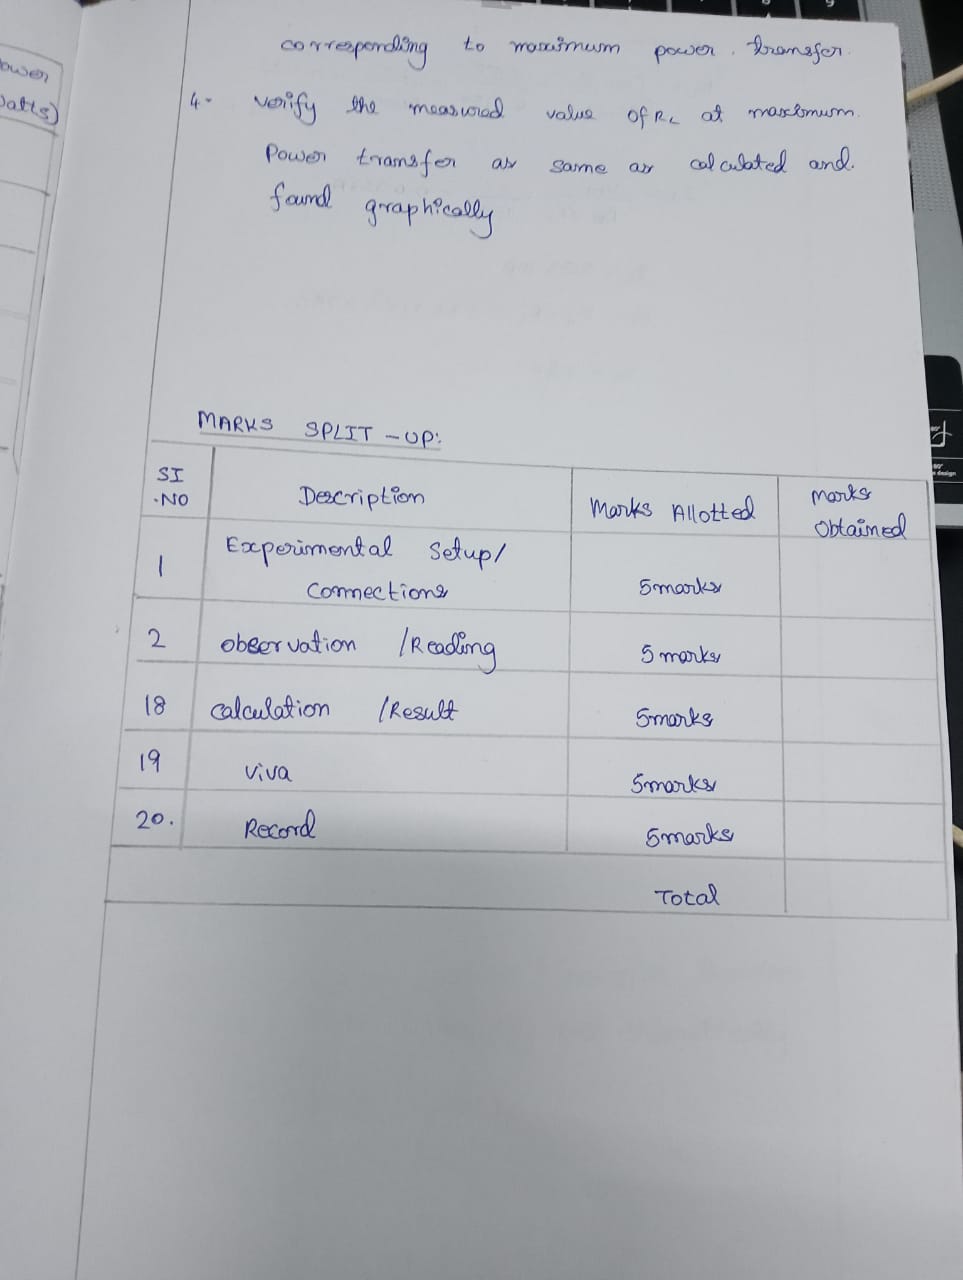 ower
atts)
corresponding to maximum power. transfer.
4. verify the measured value of RL at maximum.
Power transfer as same as calculated and.
found graphically
MARKS SPLIT-UP:
SI .NO Description Marks Allotted Marks Obtained
1 Experimental Setup/ Connections 5marks
2 observation /Reading 5 marks
18 calculation /Result 5marks
19 viva 5marks
20. Record 5marks
Total
design